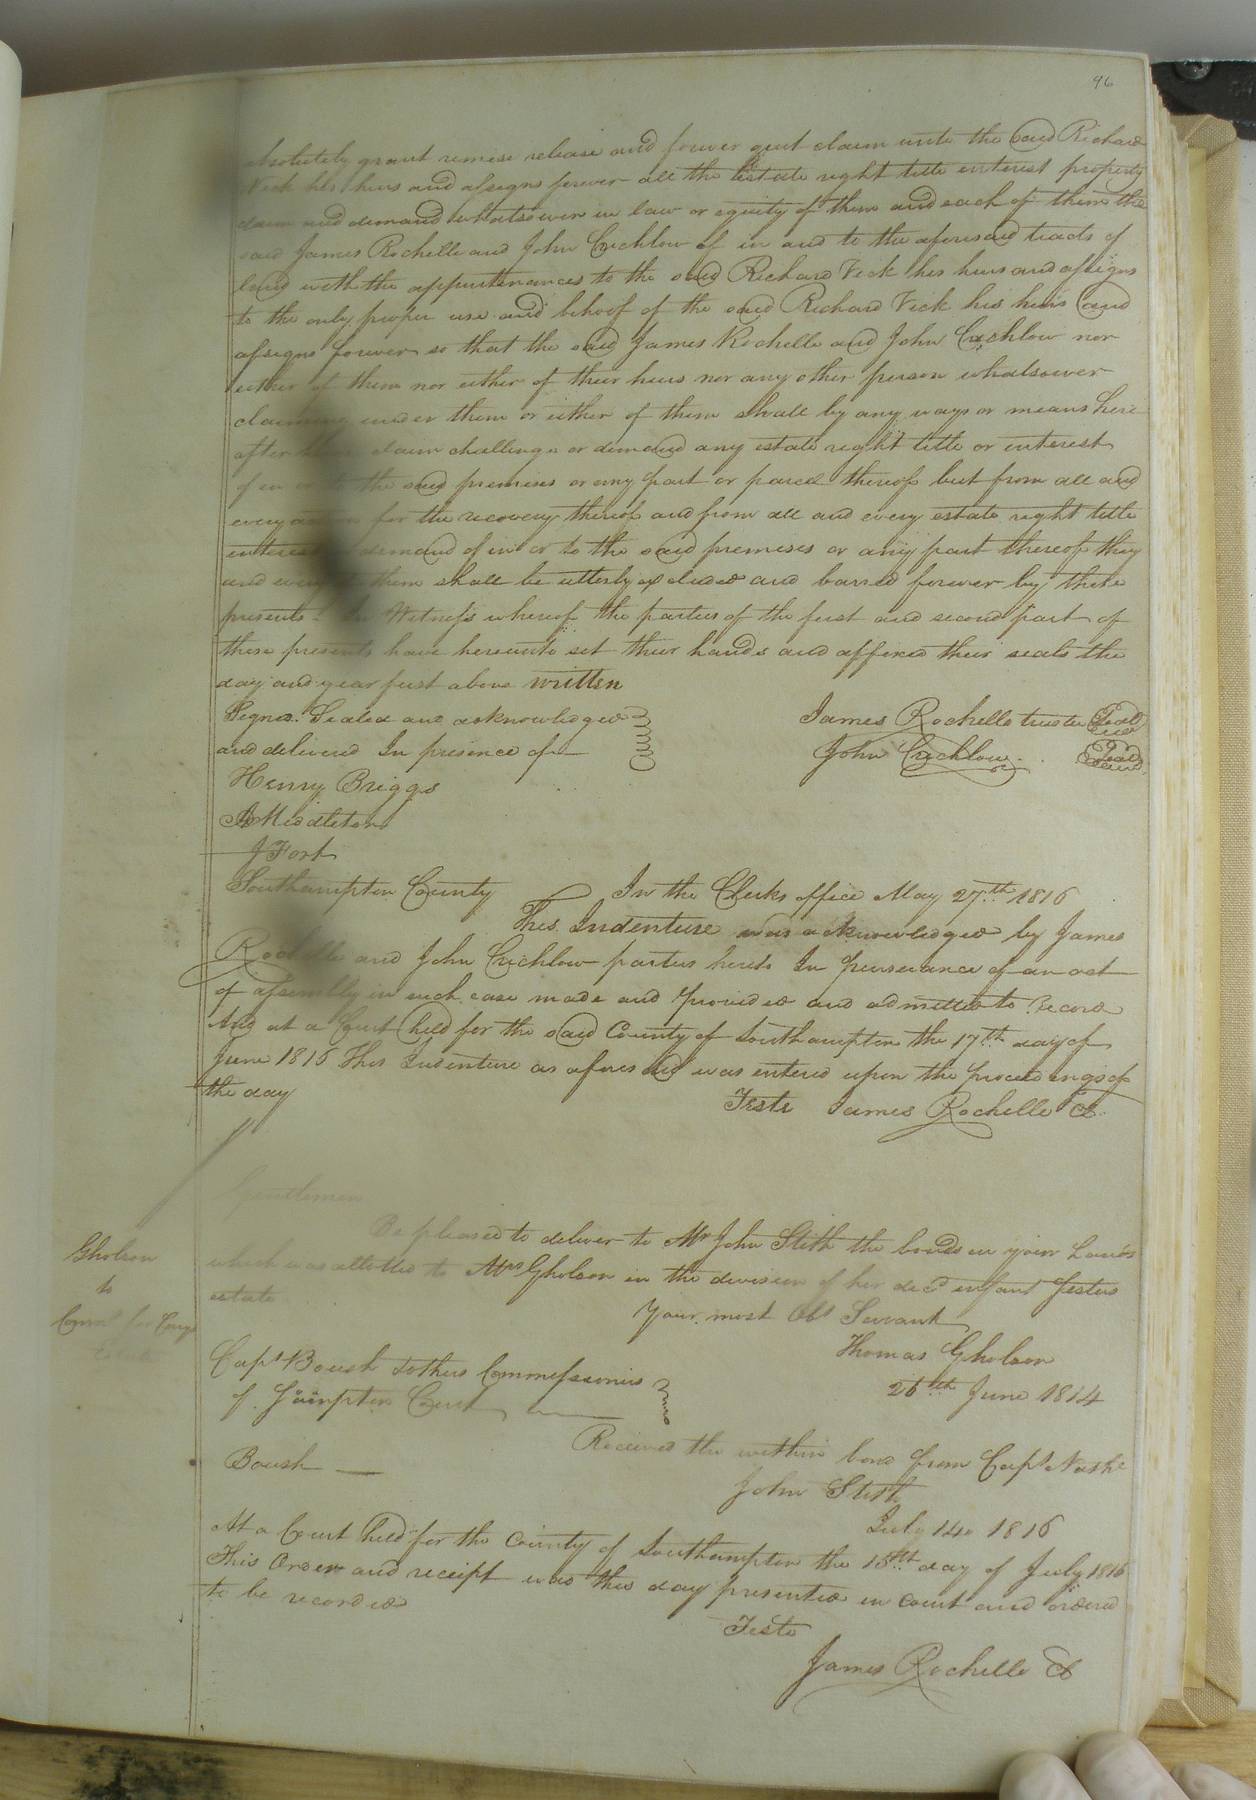 96
absolutely grant remise release and forever quit claim unto the said Richard
Vick his heirs and assigns forever all the Estate right title interest property
claim and demand whatsoever in law or equity of them and each of them the
said James Rochelle and John Crichlow of in and to the aforesaid tracts of
land with the appurtenances to the said Richard Vick his heirs and assigns
to the only proper use and behoof of the said Richard Vick his heirs and
assigns forever so that the said James Rochelle and John Crichlow nor
either of them nor either of their heirs nor any other person whatsoever
claiming under them or either of them shall by any ways or means here
after claim challenge or demand any estate right title or interest
of in or to the said premises or any part or parcel thereof but from all and
every action for the recovery thereof and from all and every estate right title
interest demand of in or to the said premises or any part thereof they
and every of them shall be utterly excluded and barred forever by these
presents. In Witness whereof the parties of the first and second part of
these presents have hereunto set their hands and affixed their seals the
day and year first above written
Signed. Sealed and acknowledged James Rochelle trustee Seal
and delivered In presence of John Crichlow Seal
Henry Briggs
Middleton
J Fort
Southampton County In the Clerks office May 27th 1816
This Indenture was acknowledged by James
Rochelle and John Crichlow parties hereto In pursuance of an act
of assembly in such case made and provided and admitted to Record
And at a Court held for the said County of Southampton the 17th day of
June 1816 This Indenture as aforesaid was entered upon the proceedings of
the day Teste James Rochelle Cl.
Gentlemen
Be pleased to deliver to Mr John Stith the bonds in your hands
which was allotted to Mrs Gholson in the division of her decd infant Sisters
estate
Your most Obt Servant
Gholson
to
Thomas Gholson
26th June 1814
Capt Boush & others Commissioners
of Sohampton Court
Received the within bond from Capt
Boush John Stith
July 14 1816
At a Court held for the County of Southampton the 15th day of July 1816
This Order and receipt was this day presented in court and ordered
to be recorded
Teste
James Rochelle Cl